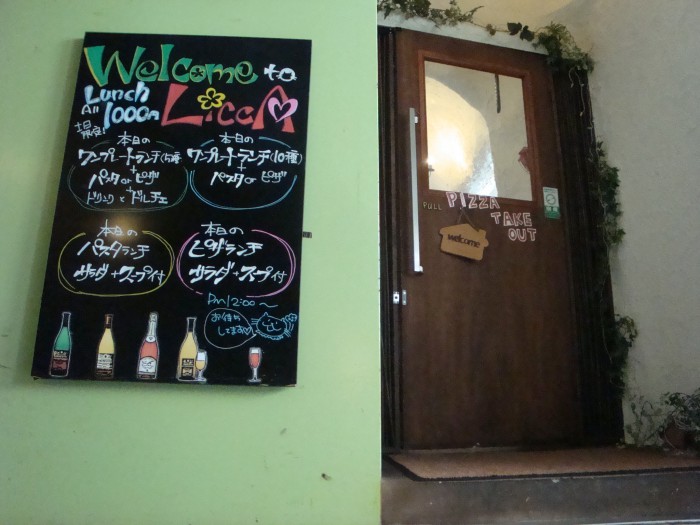 Welcome to
Lunch
All 1000円
LiccA
土日
限定!
本日の
ワンプレートランチ
+
パスタ or ピザ
+
ドリンク と ドルチェ
本日の
ワンプレートランチ(10種)
+
パスタ or ピザ
本日の
パスタランチ
サラダ+スープ付
本日の
ピザランチ
サラダ+スープ付
Pm 12:00〜
お待ち
してます
PULL
PIZZA
TAKE
OUT
welcome